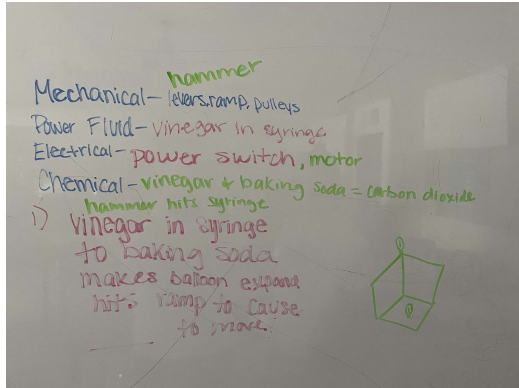 hammer
Mechanical - levers, ramp, pulleys
Power Fluid - vinegar in syringe
Electrical - power switch, motor
Chemical - vinegar + baking soda = carbon dioxide
hammer hits syringe
1) vinegar in syringe
to baking soda
makes balloon expand
hits ramp to cause
to move